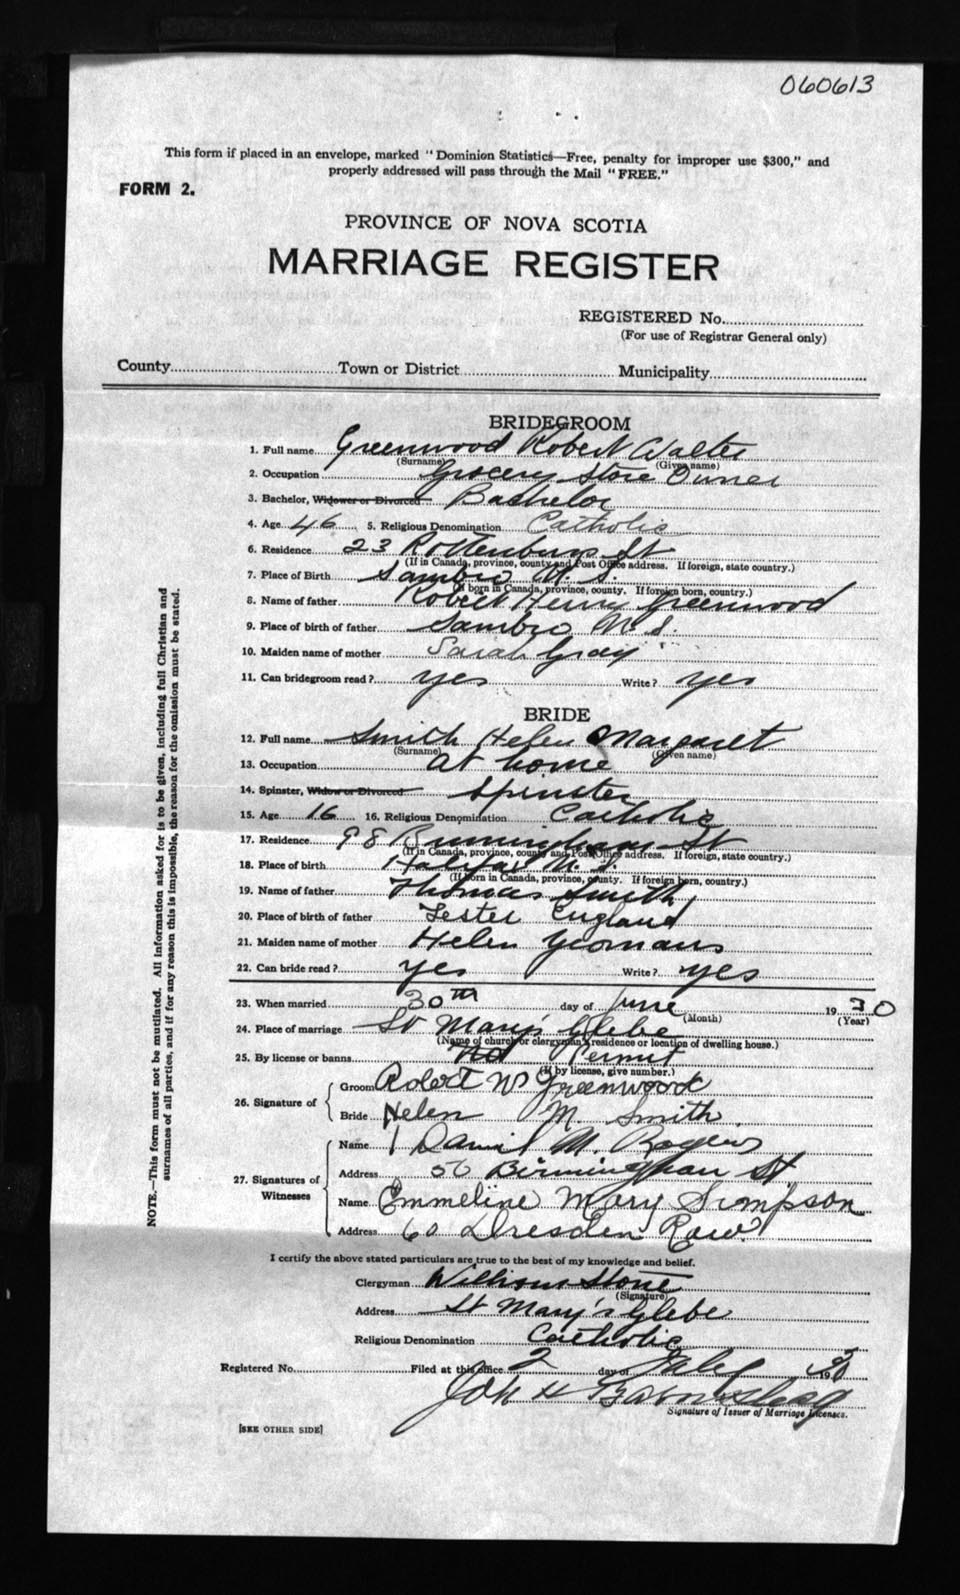 060613
This form if placed in an envelope, marked "Dominion Statistics—Free, penalty for improper use $300," and
properly addressed will pass through the Mail "FREE."
FORM 2.
PROVINCE OF NOVA SCOTIA
MARRIAGE REGISTER
REGISTERED No.
(For use of Registrar General only)
County Town or District Municipality
BRIDEGROOM
1. Full name Greenwood Robert Walter
(Surname) (Given name)
2. Occupation Grocery Store Owner
3. Bachelor, Widower or Divorced Bachelor
4. Age 46 5. Religious Denomination Catholic
6. Residence 23 Rottenburg St
(If in Canada, province, county and Post Office address. If foreign, state country.)
7. Place of Birth Sambro N. S.
(If born in Canada, province, county. If foreign born, country.)
8. Name of father Robert Henry Greenwood
9. Place of birth of father Sambro N. S.
10. Maiden name of mother Sarah Gray
11. Can bridegroom read? yes Write? yes
BRIDE
12. Full name Smith Helen Margaret
(Surname) (Given name)
13. Occupation at home
14. Spinster, Widow or Divorced Spinster
15. Age 16 16. Religious Denomination Catholic
17. Residence 98 Birmingham St
(If in Canada, province, county and Post Office address. If foreign, state country.)
18. Place of birth Halifax N. S.
(If born in Canada, province, county. If foreign born, country.)
19. Name of father Thomas Smith
20. Place of birth of father Lester England
21. Maiden name of mother Helen Yeomans
22. Can bride read? yes Write? yes
23. When married 30th day of June 1930
(Month) (Year)
24. Place of marriage St Mary's Glebe
(Name of church or clergyman's residence or location of dwelling house.)
25. By license or banns Permit
(If by license, give number.)
26. Signature of
Groom Robert W Greenwood
Bride Helen M. Smith
27. Signatures of Witnesses
Name Daniel M. Rogers
Address 50 Birmingham St
Name Emmeline Mary Simpson
Address 60 Dresden Row
I certify the above stated particulars are true to the best of my knowledge and belief.
Clergyman William Stone
(Signature)
Address St Mary's Glebe
Religious Denomination Catholic
Registered No. Filed at this office 2 day of July 1930
Signature of Issuer of Marriage Licenses.
[SEE OTHER SIDE]
NOTE.—This form must not be mutilated. All information asked for is to be given, including full Christian and
surnames of all parties, and if for any reason this is impossible, the reason for the omission must be stated.